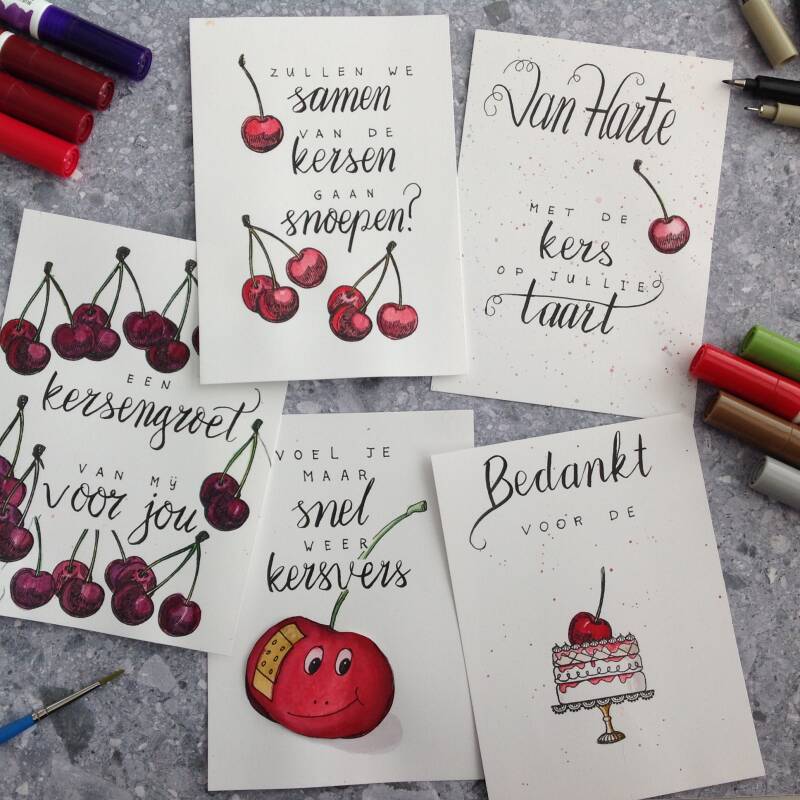 ZULLEN WE
samen
VAN DE
kersen
GAAN
snoepen?
Van Harte
MET DE
kers
OP JULLIE
taart
EEN
kersengroet
VAN MIJ
voor jou
VOEL JE
MAAR
snel
WEER
kersvers
Bedankt
VOOR DE